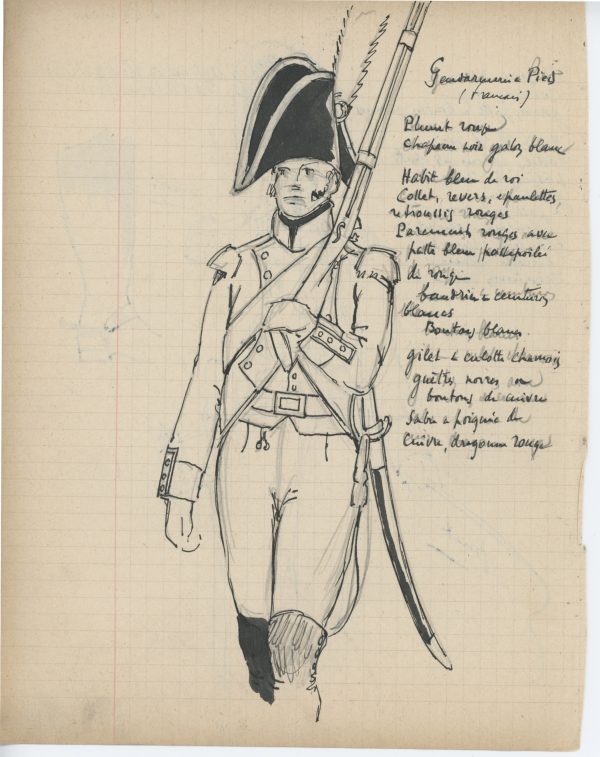 Gendarmerie à Pied
(Français)
Plumet rouge
chapeau noir galon blanc
Habit bleu de roi
Collet, revers, epaulettes,
retroussis rouges
Parements rouges avec
patte bleue passepoilée
de rouge
baudrier & ceinturon
blancs
Boutons blancs.
gilet & culotte chamois
guêtres noires avec
boutons de cuivre
Sabre à poignée de
cuivre, dragonne rouge